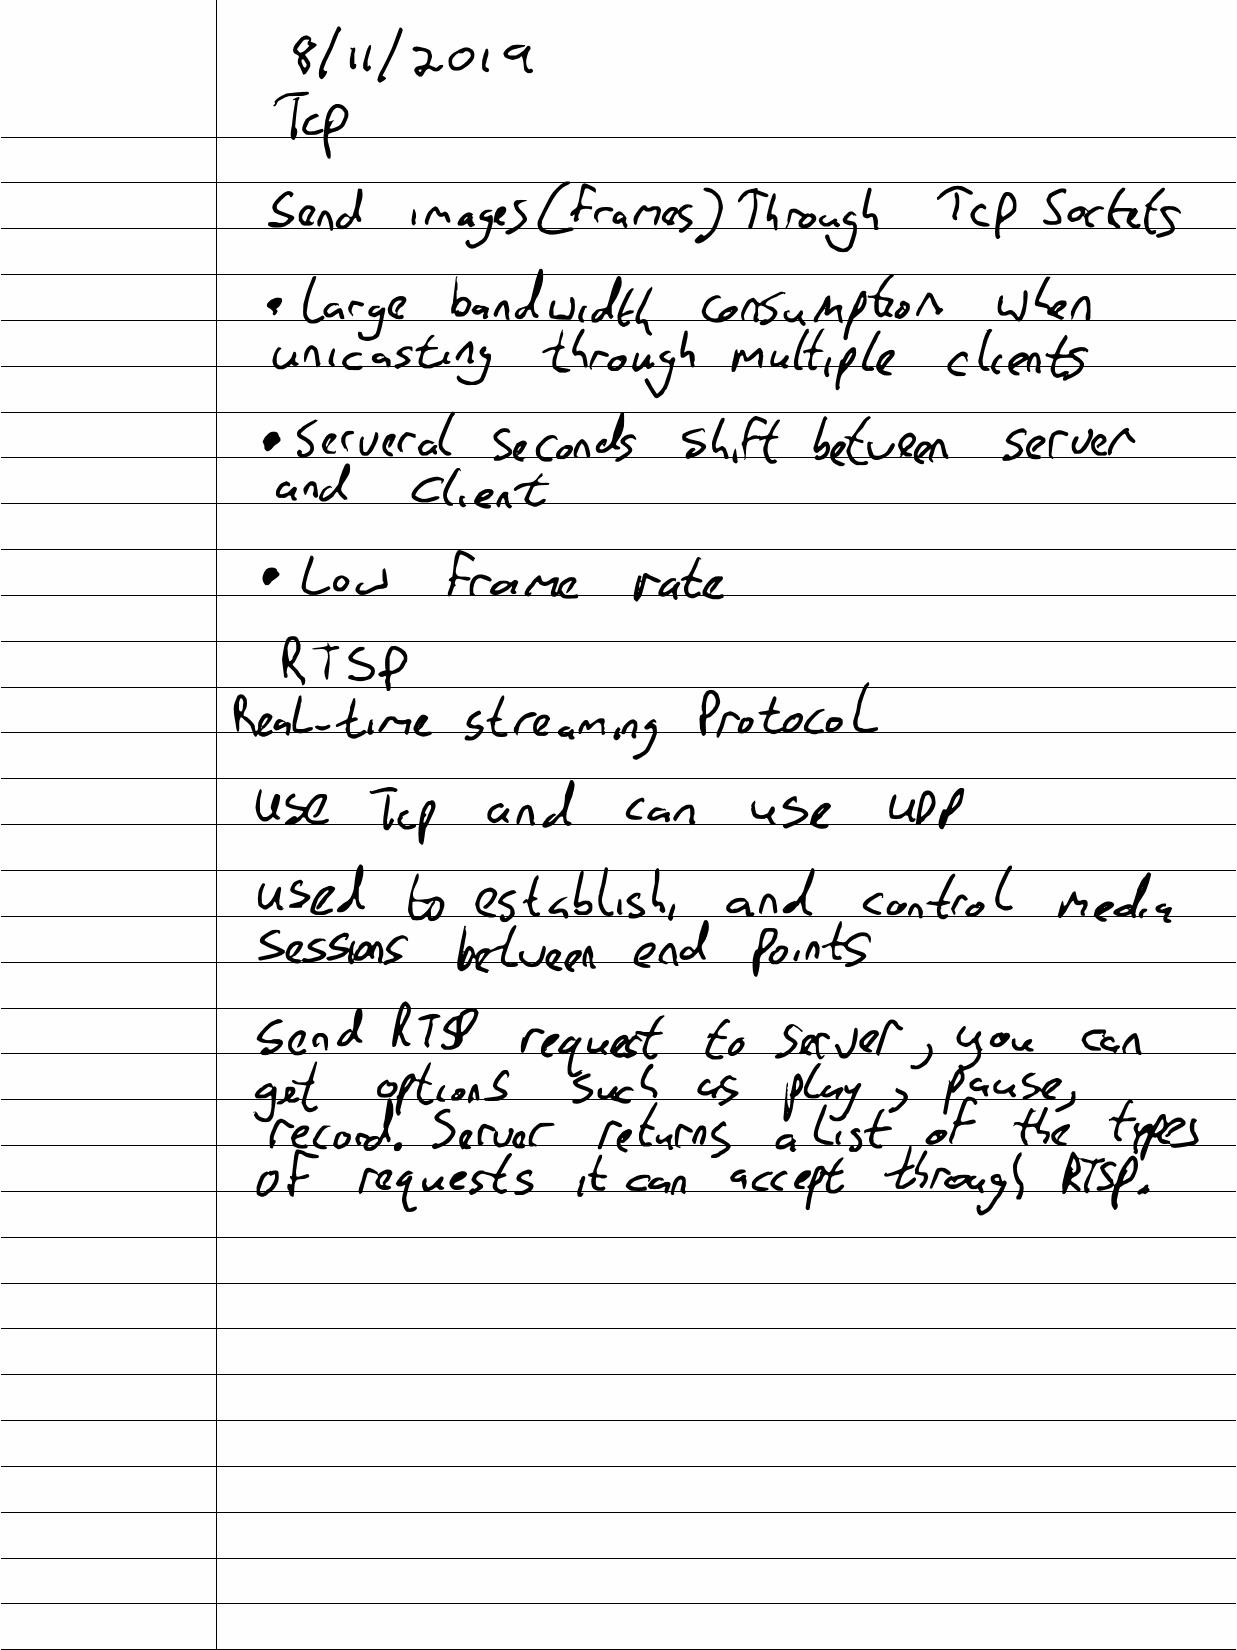 8/11/2019
Tcp
Send images(frames) Through Tcp Sockets
• Large bandwidth consumption when
unicasting through multiple clients
• Serveral seconds shift between server
and Client
• Low frame rate
RTSP
Real-time streaming Protocol
use Tcp and can use UDP
used to establish, and control media
sessions between end points
send RTSP request to server, you can
get options such as play, pause,
record. Server returns a list of the types
of requests it can accept through RTSP.